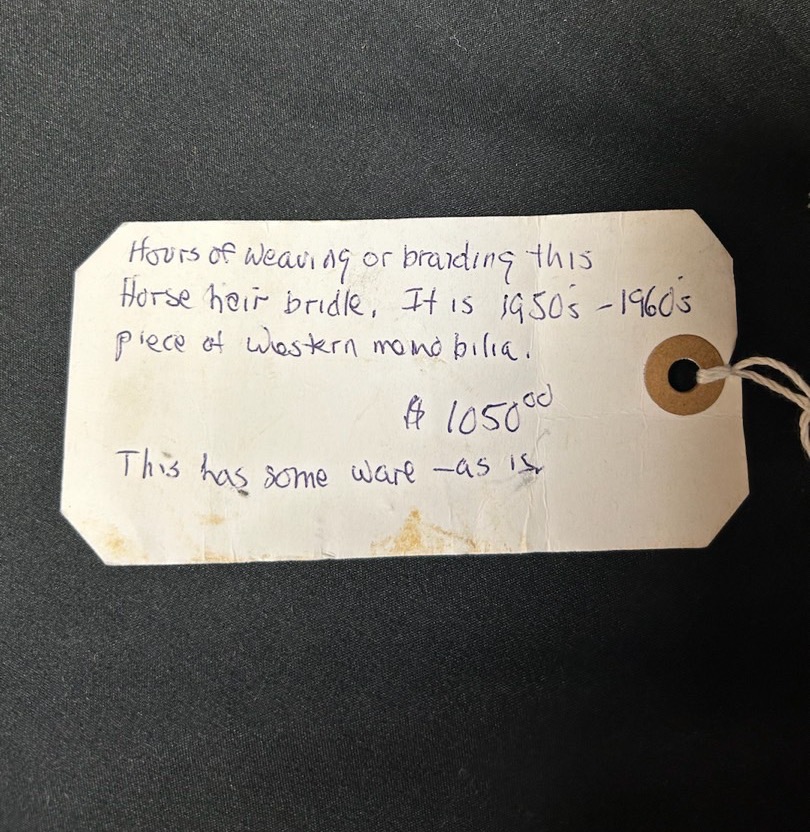 Hours of weaving or braiding this
Horse hair bridle. It is 1950's - 1960's
piece of Western momobilia.
$ 1050⁰⁰
This has some ware - as is.